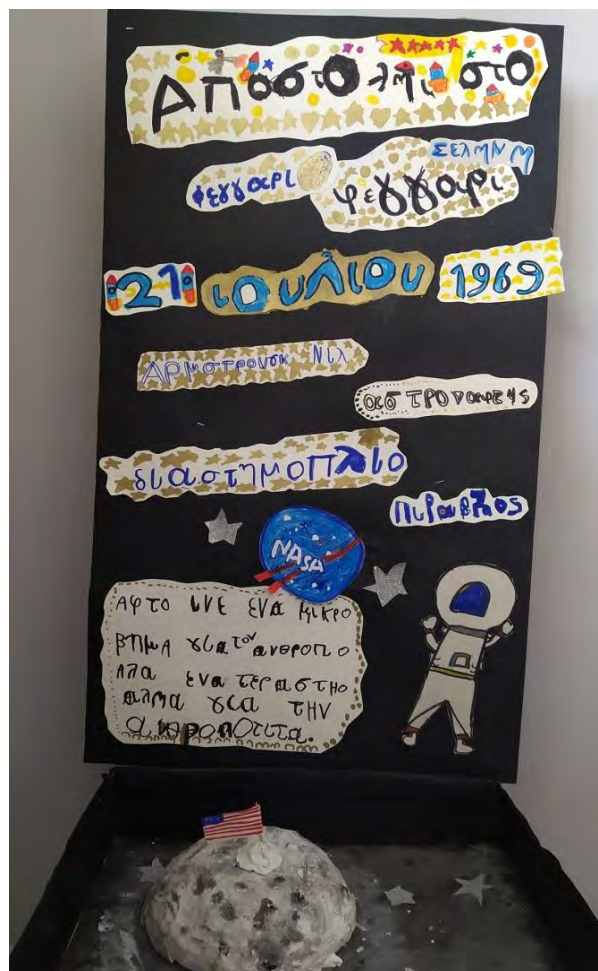 Αποστολη στο
Σεληνη
φεγγαρι
φεγγαρι
21 ιουλιου 1969
Αρμστρονσκ Νιλ
αστροναφτης
διαστημοπλιο
Πιραβλος
NASA
αφτο ινε ενα μικρο
βπμα για τον ανθροπο
αλα ενα τεραστηο
αλμα για την
ανθροποτιτα.